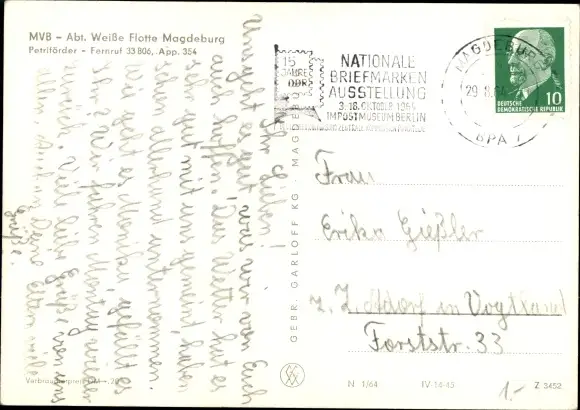 MVB – Abt. Weiße Flotte Magdeburg
Petriförder - Fernruf 33 806, App. 354
Ihr Lieben!
Uns geht es gut was wir von Euch
auch hoffen. Das Wetter hat es
sehr gut mit uns gemeint, haben
schon allerhand unternommen.
Wie geht es Monika, gefällt es
Wir fahren Montag wieder
zurück. Viele liebe Grüße von uns
allen und Deine Eltern
Grüße
Verbraucherpreis DM -,20
GEBR. GARLOFF KG · MAGDEBURG
15
JAHRE
DDR
NATIONALE
BRIEFMARKEN
AUSSTELLUNG
3.-18. OKTOBER 1964
IM POSTMUSEUM BERLIN
MAGDEBURG
29.8.64
BPA 1
DEUTSCHE
DEMOKRATISCHE REPUBLIK
10
Frau
Erika Gießler
z. Z. Adorf in Vogtland
Forststr. 33
N 1/64
IV-14-45
1.-
Z 3452